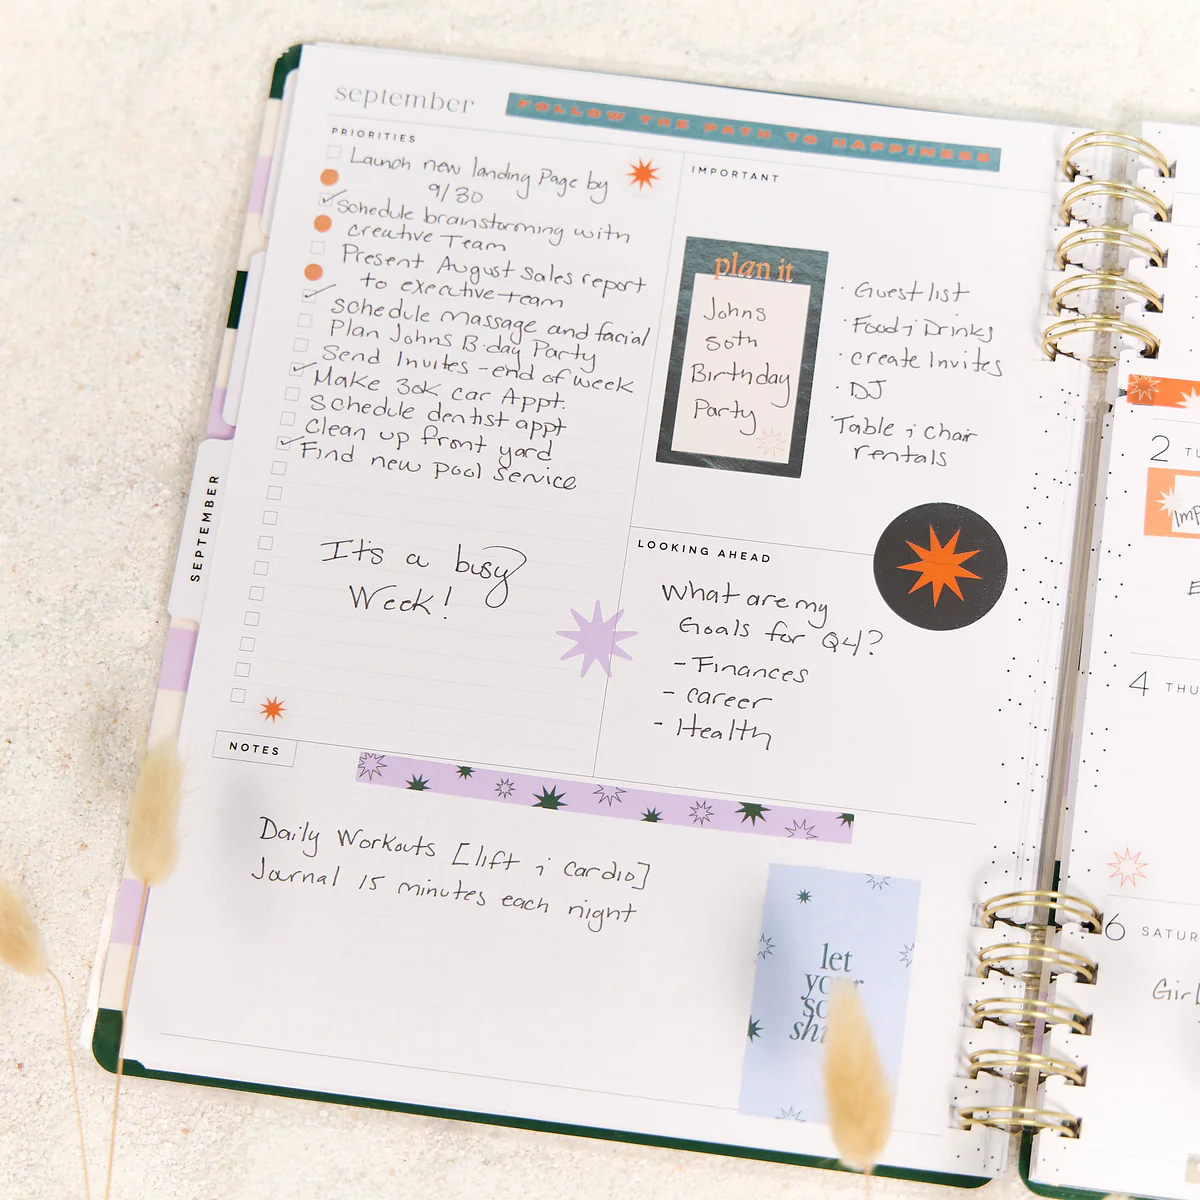 september
FOLLOW THE PATH TO HAPPINESS
PRIORITIES
Launch new landing Page by
9/30
Schedule brainstorming with
creative Team
Present August sales report
to executive team
schedule massage and facial
Plan Johns B-day Party
Send Invites - end of week
Make 30K car Appt.
Schedule dentist appt
Clean up front yard
Find new pool service
It's a busy
Week!
IMPORTANT
plan it
Johns
50th
Birthday
Party
· Guest list
· Food & Drinks
· create Invites
· DJ
· Table & Chair
rentals
LOOKING AHEAD
What are my
Goals for Q4?
- Finances
- career
- Health
NOTES
Daily Workouts [lift & cardio]
Journal 15 minutes each night
let
SEPTEMBER
2
4 THU
6 SATUR